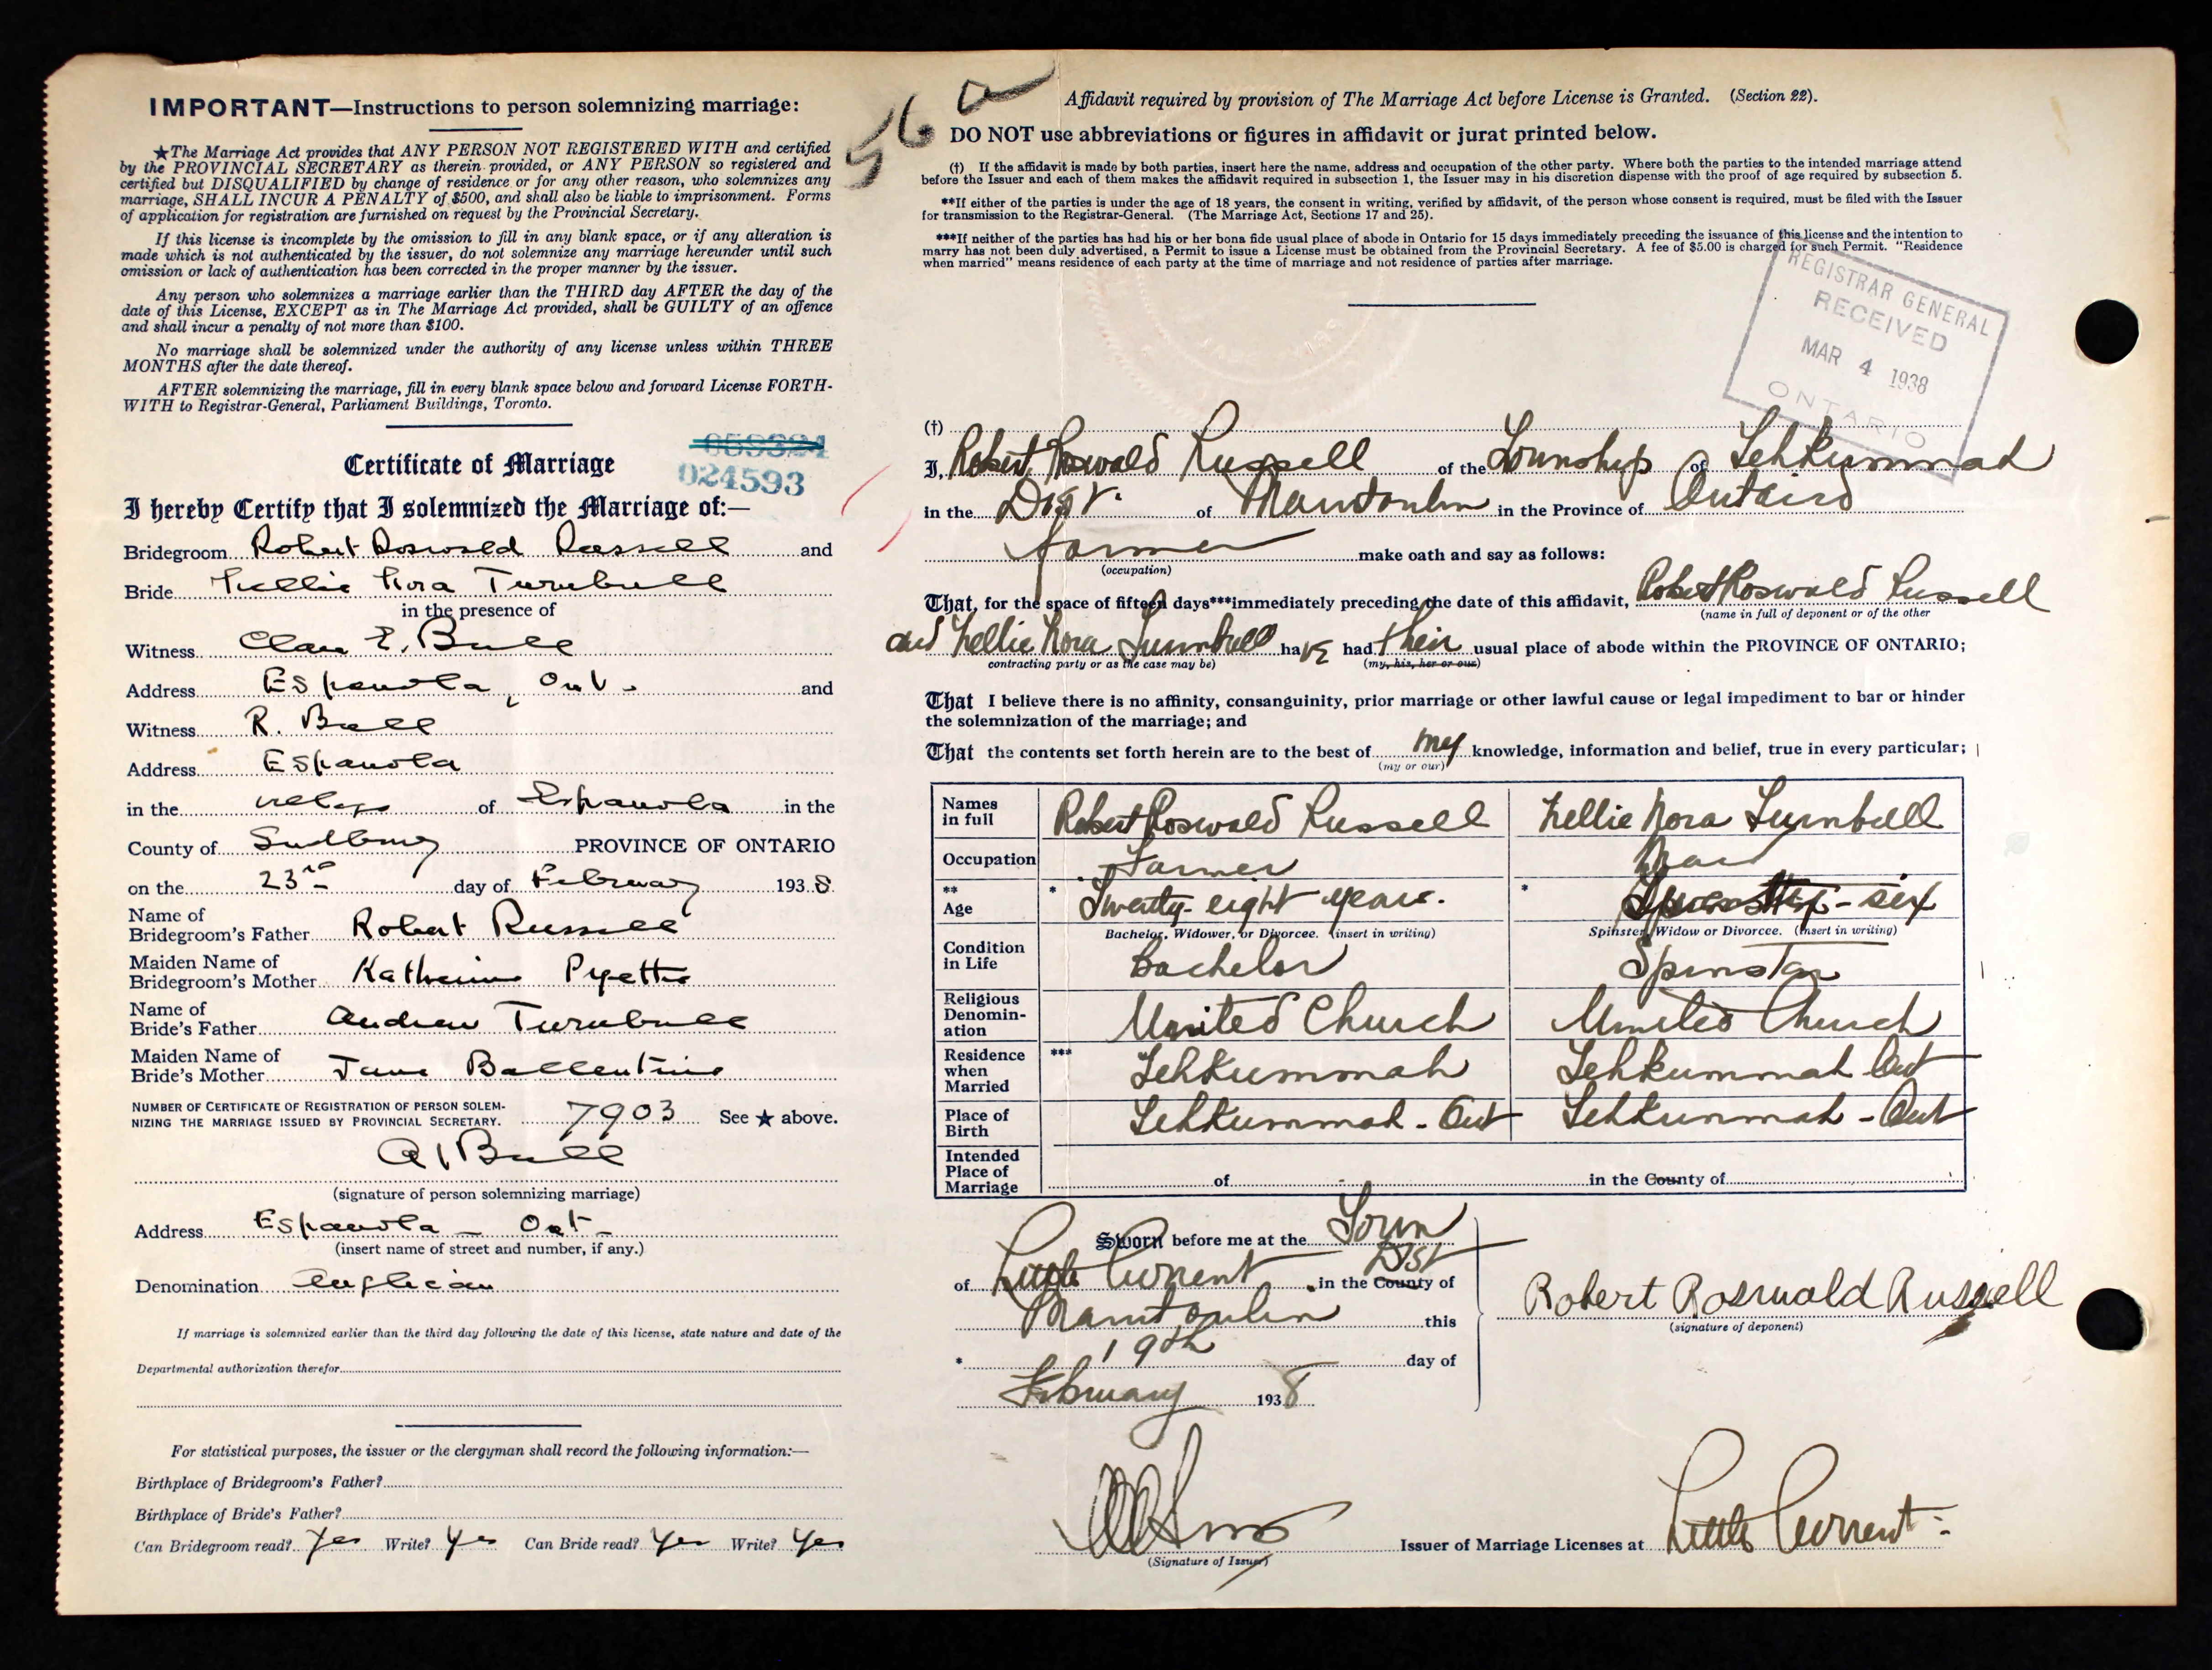 IMPORTANT—Instructions to person solemnizing marriage:
★The Marriage Act provides that ANY PERSON NOT REGISTERED WITH and certified
by the PROVINCIAL SECRETARY as therein provided, or ANY PERSON so registered and
certified but DISQUALIFIED by change of residence or for any other reason, who solemnizes any
marriage, SHALL INCUR A PENALTY of $500, and shall also be liable to imprisonment. Forms
of application for registration are furnished on request by the Provincial Secretary.
If this license is incomplete by the omission to fill in any blank space, or if any alteration is
made which is not authenticated by the issuer, do not solemnize any marriage hereunder until such
omission or lack of authentication has been corrected in the proper manner by the issuer.
Any person who solemnizes a marriage earlier than the THIRD day AFTER the day of the
date of this License, EXCEPT as in The Marriage Act provided, shall be GUILTY of an offence
and shall incur a penalty of not more than $100.
No marriage shall be solemnized under the authority of any license unless within THREE
MONTHS after the date thereof.
AFTER solemnizing the marriage, fill in every blank space below and forward License FORTH-
WITH to Registrar-General, Parliament Buildings, Toronto.
059324
024593
Certificate of Marriage
I hereby Certify that I solemnized the Marriage of:—
Bridegroom Robert Roswald Russell and
Bride Nellie Nora Turnbull
in the presence of
Witness E. Bull
Address Espanola, Ont. and
Witness R. Bull
Address Espanola
in the village of Espanola in the
County of Sudbury PROVINCE OF ONTARIO
on the 23rd day of February 1938
Name of
Bridegroom's Father Robert Russell
Maiden Name of
Bridegroom's Mother Katherine Pyette
Name of
Bride's Father Andrew Turnbull
Maiden Name of
Bride's Mother Jane Ballentine
NUMBER OF CERTIFICATE OF REGISTRATION OF PERSON SOLEM-
NIZING THE MARRIAGE ISSUED BY PROVINCIAL SECRETARY. 7903 See ★ above.
Bull
(signature of person solemnizing marriage)
Address Espanola - Ont-
(insert name of street and number, if any.)
Denomination Anglican
If marriage is solemnized earlier than the third day following the date of this license, state nature and date of the
Departmental authorization therefor
For statistical purposes, the issuer or the clergyman shall record the following information:—
Birthplace of Bridegroom's Father?
Birthplace of Bride's Father?
Can Bridegroom read? Yes Write? Yes Can Bride read? Yes Write? Yes
56 a
Affidavit required by provision of The Marriage Act before License is Granted. (Section 22).
DO NOT use abbreviations or figures in affidavit or jurat printed below.
(†) If the affidavit is made by both parties, insert here the name, address and occupation of the other party. Where both the parties to the intended marriage attend
before the Issuer and each of them makes the affidavit required in subsection 1, the Issuer may in his discretion dispense with the proof of age required by subsection 5.
**If either of the parties is under the age of 18 years, the consent in writing, verified by affidavit, of the person whose consent is required, must be filed with the Issuer
for transmission to the Registrar-General. (The Marriage Act, Sections 17 and 25).
***If neither of the parties has had his or her bona fide usual place of abode in Ontario for 15 days immediately preceding the issuance of this license and the intention to
marry has not been duly advertised, a Permit to issue a License must be obtained from the Provincial Secretary. A fee of $5.00 is charged for such Permit. "Residence
when married" means residence of each party at the time of marriage and not residence of parties after marriage.
REGISTRAR GENERAL
RECEIVED
MAR 4 1938
ONTARIO
(†)
I, Robert Roswald Russell of the Township of Tehkummah
in the Dist. of Manitoulin in the Province of Ontario
farmer make oath and say as follows:
(occupation)
That, for the space of fifteen days***immediately preceding the date of this affidavit, Robert Roswald Russell
(name in full of deponent or of the other
and Nellie Nora Turnbull have had their usual place of abode within the PROVINCE OF ONTARIO;
contracting party or as the case may be) (my, his, her or our)
That I believe there is no affinity, consanguinity, prior marriage or other lawful cause or legal impediment to bar or hinder
the solemnization of the marriage; and
That the contents set forth herein are to the best of my knowledge, information and belief, true in every particular;
(my or our)
Names
in full Robert Roswald Russell Nellie Nora Turnbull
Occupation Farmer
** Age * Twenty-eight years. * Twenty-six
Bachelor, Widower, or Divorcee. (insert in writing) Spinster, Widow or Divorcee. (insert in writing)
Condition
in Life Bachelor Spinster
Religious
Denomin-
ation United Church United Church
Residence
when
Married *** Tehkummah Tehkummah Ont
Place of
Birth Tehkummah - Ont Tehkummah - Ont
Intended
Place of
Marriage of in the County of
Sworn before me at the Town
of Little Current in the County of Dist
Manitoulin this
* 19th day of
February 1938
Robert Roswald Russell
(signature of deponent)
(Signature of Issuer)
Issuer of Marriage Licenses at Little Current-